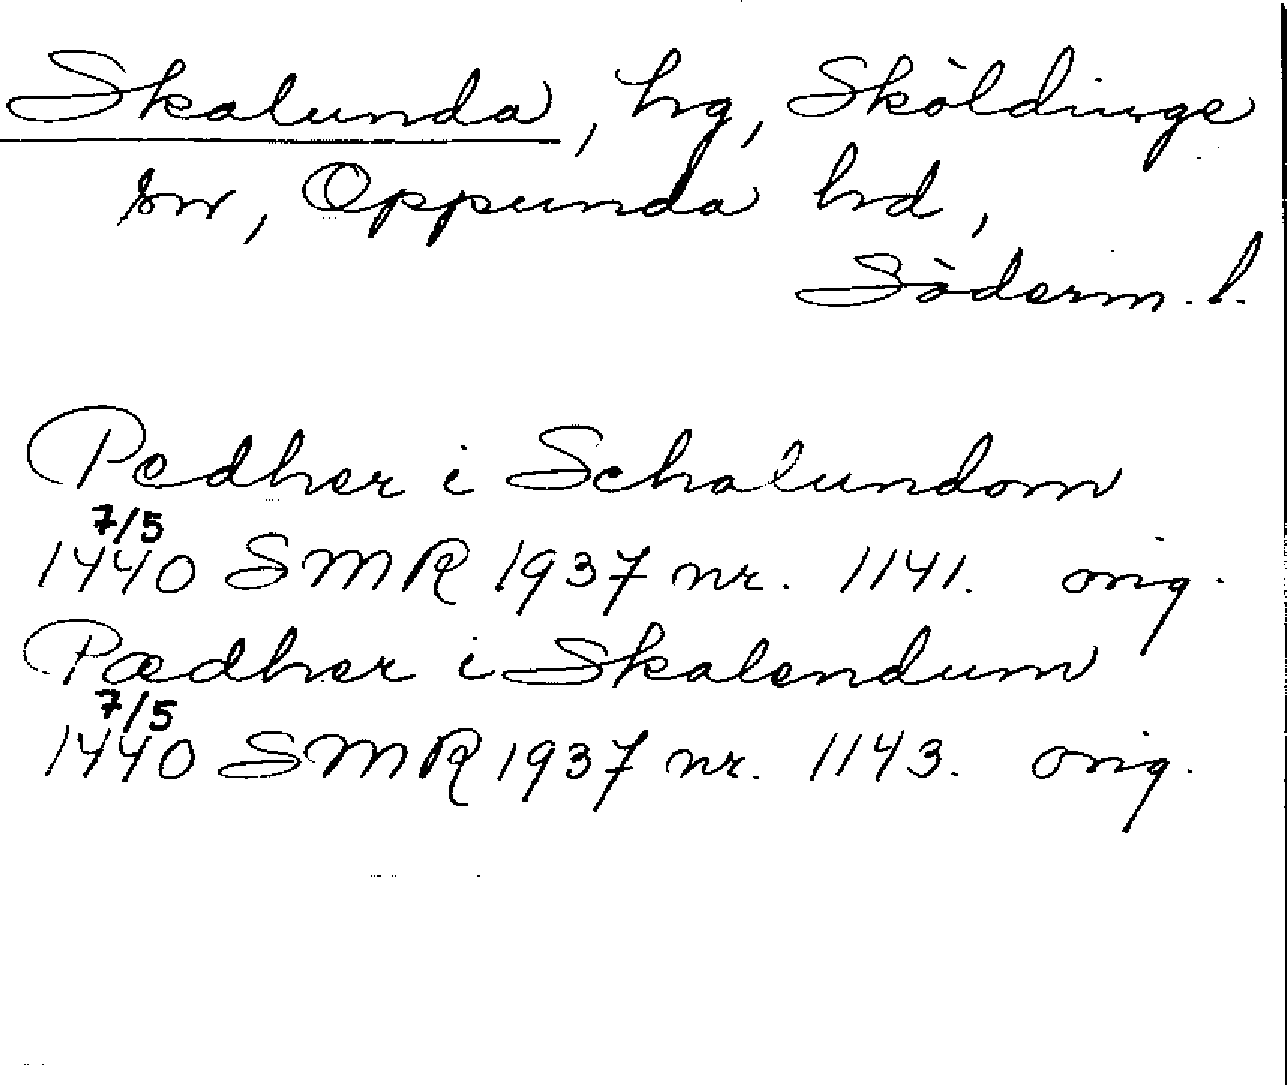 Skalunda, hg, Sköldinge
sn, Oppunda hd,
Söderm. l.
Pedher i Schalundom
7/5
1440 SMR 1937 nr. 1141. orig.
Pædher i Skalendum
7/5
1440 SMR 1937 nr. 1143. orig.